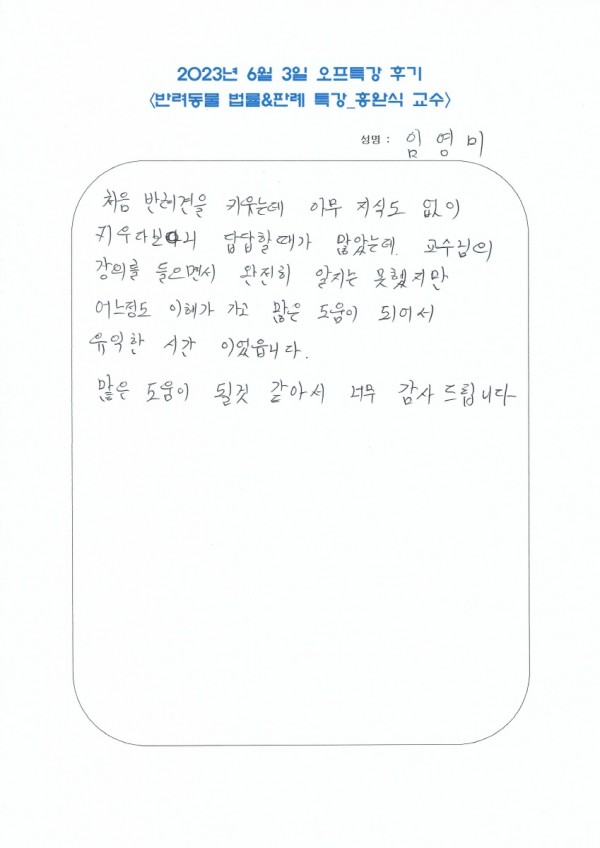 2023년 6월 3일 오프특강 후기
<반려동물 법률&판례 특강_홍완식 교수>
성명 : 임영미
처음 반레견을 키웃는데 아무 지식도 없이
키우다보니 답답할때가 많았는데. 교수님의
강의를 들으면서 완전히 알지는 못했지만
어느정도 이해가 가고 많은 도움이 되어서
유익한 시간 이었읍니다.
많은 도움이 될것 같아서 너무 감사 드립니다